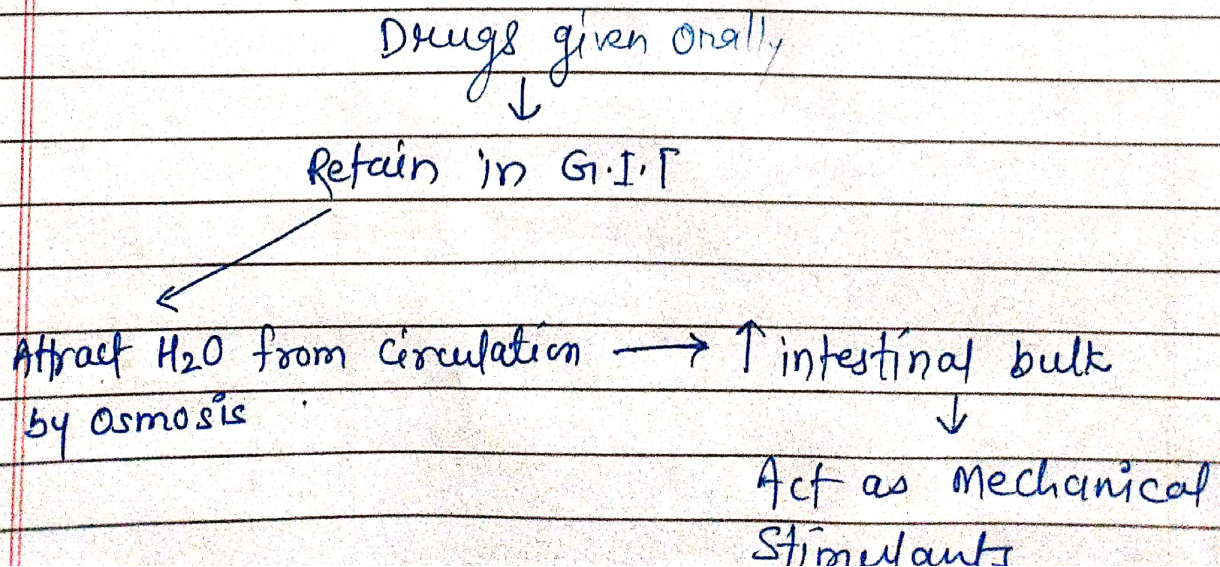 Drugs given Orally
↓
Retain in G.I.T
Attract H₂O from Circulation → ↑ intestinal bulk
by Osmosis
↓
Act as Mechanical
Stimulants